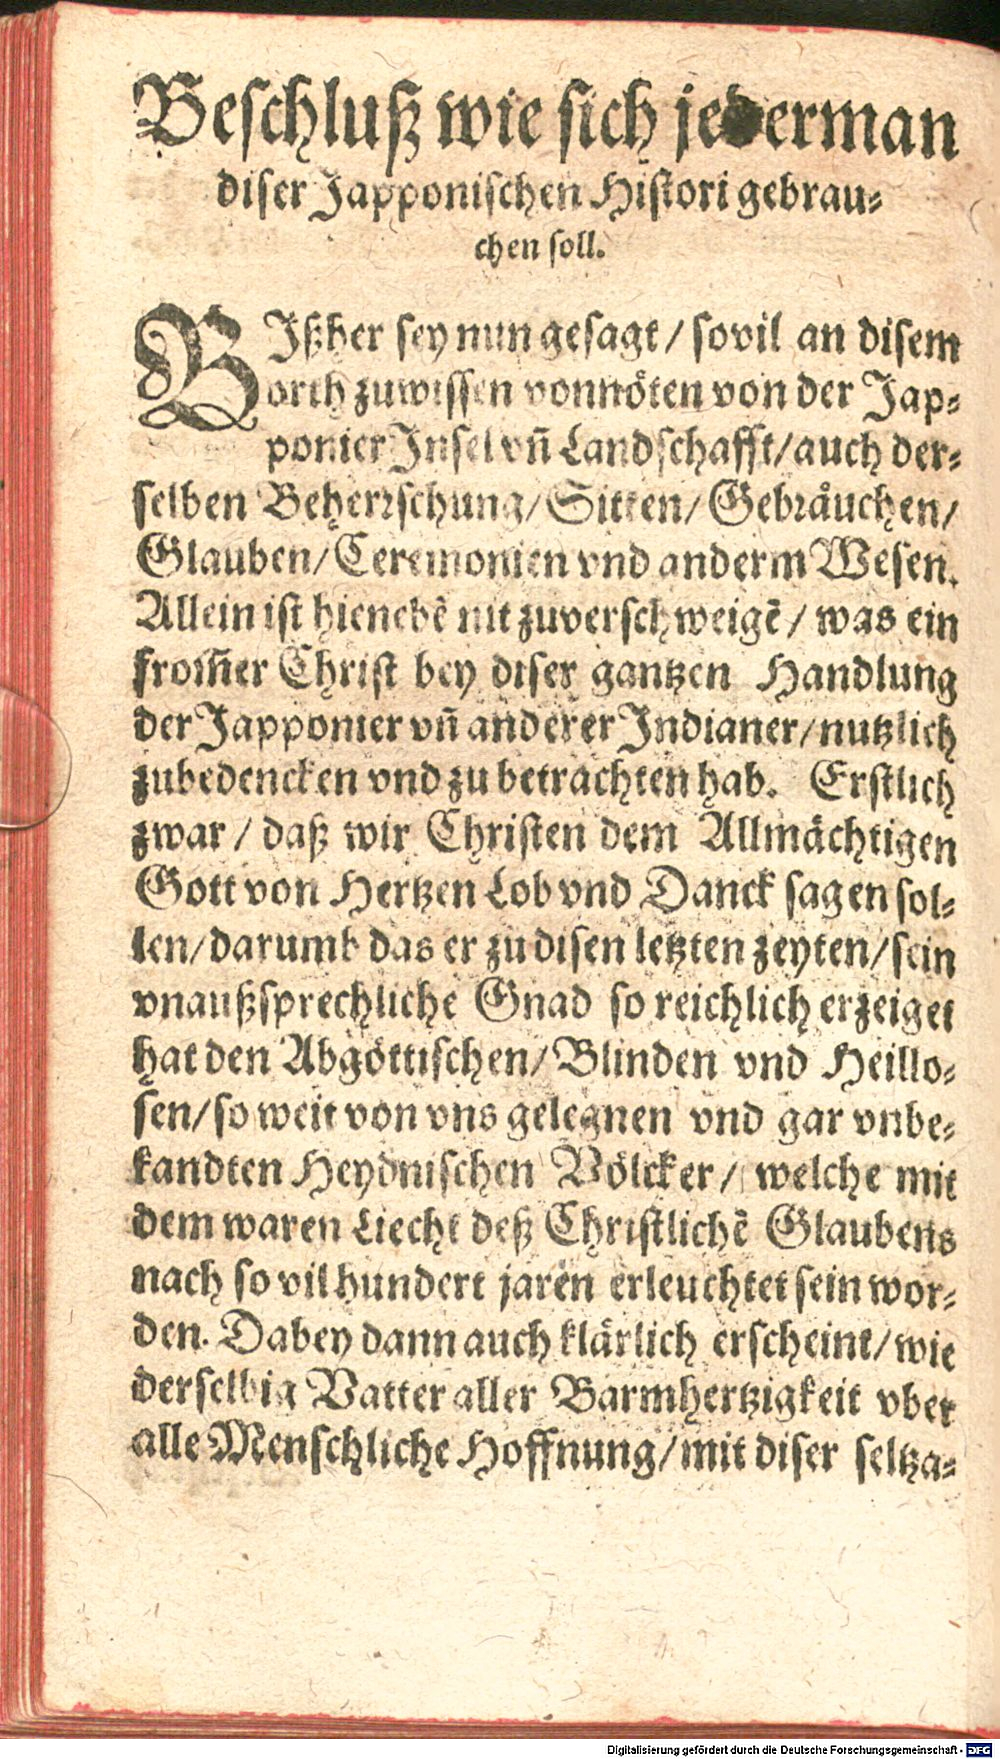 Beschluß wie sich jederman
diser Japponischen Histori gebrau⸗
chen soll.
BIßher sey nun gesagt / sovil an disem
orth zuwissen vonnöten von der Jap⸗
ponier Insel vn̄ Landschafft/auch der⸗
selben Beherrschung/Sitten/Gebräuchen/
Glauben/Ceremonien vnd anderm Wesen.
Allein ist hienebē nit zuverschweigē / was ein
from̄er Christ bey diser gantzen Handlung
der Japponier vn̄ anderer Indianer/nutzlich
zubedencken vnd zu betrachten hab. Erstlich
zwar / daß wir Christen dem Allmächtigen
Gott von Hertzen Lob vnd Danck sagen sol⸗
len/darumb das er zu disen letzten zeyten/sein
vnaußsprechliche Gnad so reichlich erzeiget
hat den Abgöttischen/Blinden vnd Heillo⸗
sen/so weit von vns gelegnen vnd gar vnbe⸗
kandten Heydnischen Völcker / welche mit
dem waren Liecht deß Christlichē Glaubens
nach so vil hundert jaren erleuchtet sein wor⸗
den. Dabey dann auch klärlich erscheint/wie
derselbig Vatter aller Barmhertzigkeit vber
alle Menschliche Hoffnung/mit diser seltza⸗
Digitalisierung gefördert durch die Deutsche Forschungsgemeinschaft - DFG